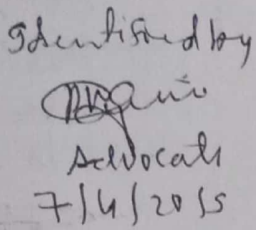 Identified by
Advocate
7/4/2015